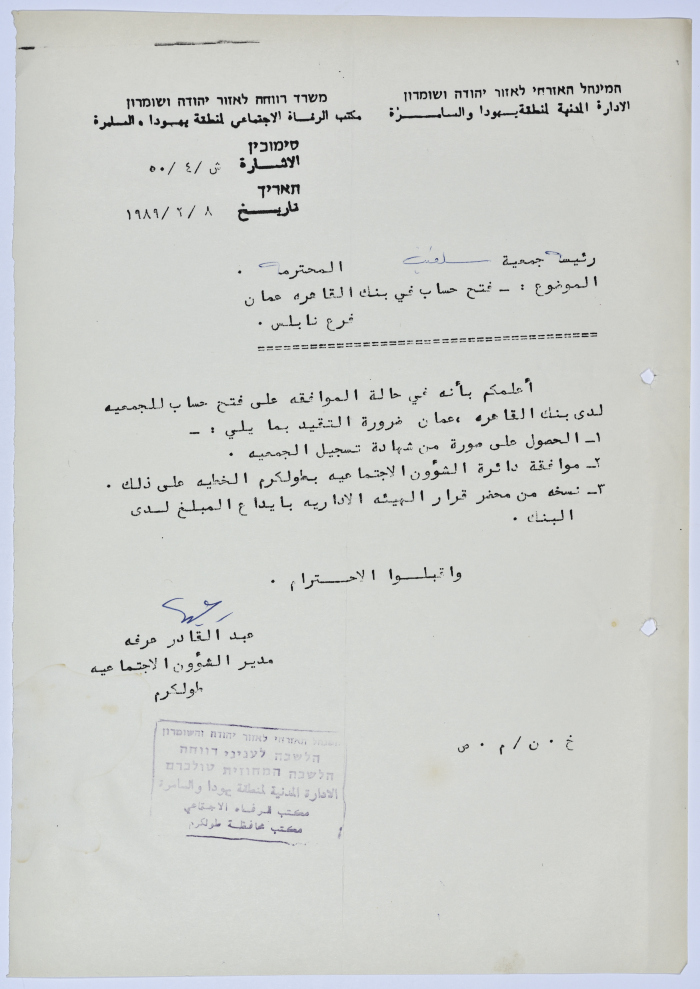 המינהל האזרחי לאזור יהודה ושומרון
الادارة المدنية لمنطقة يهودا والسامرة
משרד רווחה לאזור יהודה ושומרון
مكتب الرفاة الاجتماعي لمنطقة يهودا والسامرة
סימוכין
الاشارة ش / ٤ / ٥٠
תאריך
تاريخ ٨ / ٢ / ١٩٨٩
رئيسة جمعية سلفيت المحترمه .
الموضوع : ـ فتح حساب في بنك القاهره عمان
فرع نابلس .
أعلمكم بأنه في حالة الموافقه على فتح حساب للجمعيه
لدى بنك القاهره ،عمان ضرورة التقيد بما يلي : ـ
١ـ الحصول على صورة من شهادة تسجيل الجمعيه .
٢ـ موافقة دائرة الشؤون الاجتماعيه بطولكرم الخطيه على ذلك .
٣ـ نسخه من محضر قرار الهيئه الاداريه بايداع المبلغ لدى
البنك .
واقبلوا الاحترام .
عبد القادر عرفه
مدير الشؤون الاجتماعيه
طولكرم
خ . ن / م . ص
המינהל האזרחי לאזור יהודה והשומרון
הלשכה לעניני רווחה
הלשכה המחוזית טולכרם
الادارة المدنية لمنطقة يهودا والسامرة
مكتب الرفاه الاجتماعي
مكتب محافظة طولكرم